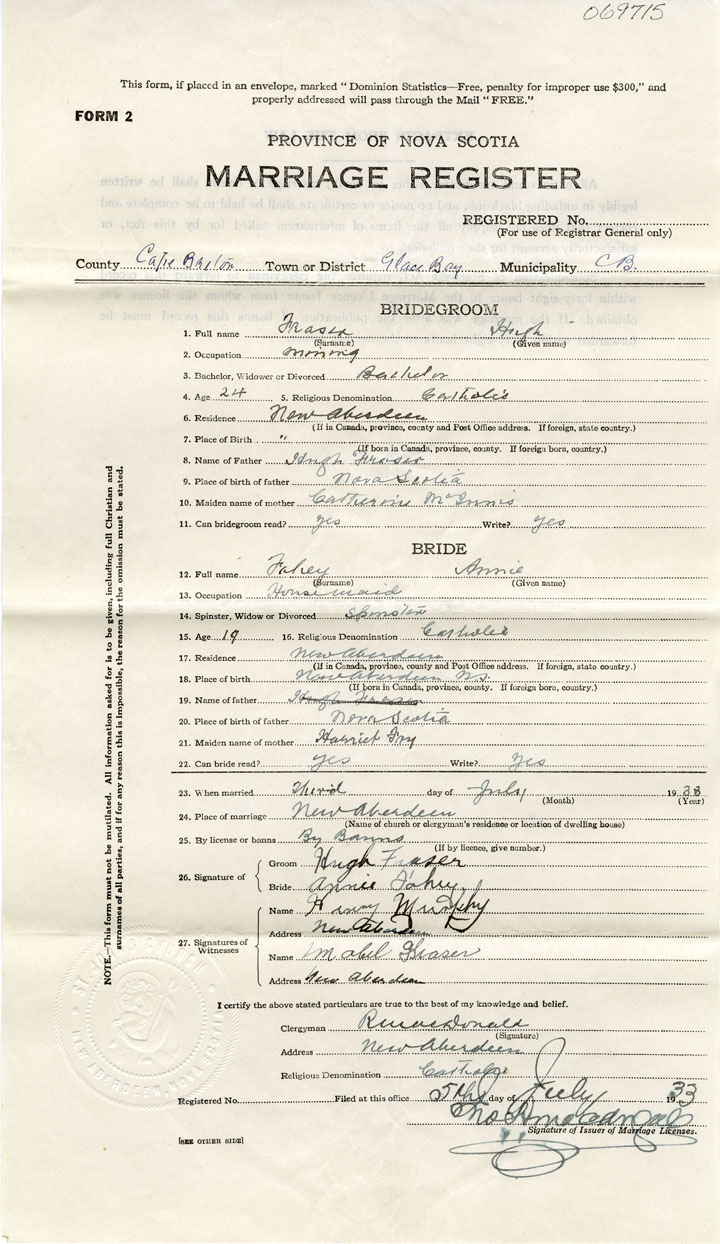 069715
This form, if placed in an envelope, marked "Dominion Statistics—Free, penalty for improper use $300," and
properly addressed will pass through the Mail "FREE."
FORM 2
PROVINCE OF NOVA SCOTIA
MARRIAGE REGISTER
REGISTERED No.
(For use of Registrar General only)
County Cape Breton Town or District Glace Bay Municipality C B.
BRIDEGROOM
1. Full name Fraser Hugh
(Surname) (Given name)
2. Occupation mining
3. Bachelor, Widower or Divorced Bachelor
4. Age 24 5. Religious Denomination Catholic
6. Residence New Aberdeen
(If in Canada, province, county and Post Office address. If foreign, state country.)
7. Place of Birth "
(If born in Canada, province, county. If foreign born, country.)
8. Name of Father Hugh Fraser
9. Place of birth of father Nova Scotia
10. Maiden name of mother Catherine McInnis
11. Can bridegroom read? yes Write? yes
BRIDE
12. Full name Fahey Annie
(Surname) (Given name)
13. Occupation Housemaid
14. Spinster, Widow or Divorced Spinster
15. Age 19 16. Religious Denomination Catholic
17. Residence New Aberdeen
(If in Canada, province, county and Post Office address. If foreign, state country.)
18. Place of birth New Aberdeen N.S.
(If born in Canada, province, county. If foreign born, country.)
19. Name of father Hugh Fraser
20. Place of birth of father Nova Scotia
21. Maiden name of mother Harriet
22. Can bride read? yes Write? yes
23. When married Third day of July 1933
(Month) (Year)
24. Place of marriage New Aberdeen
(Name of church or clergyman's residence or location of dwelling house)
25. By license or banns By Banns
(If by licence, give number.)
26. Signature of Groom Hugh Fraser
Bride Annie Fahey
27. Signatures of Witnesses Name Henry Murphy
Address New Aberdeen
Name Mabel Fraser
Address New Aberdeen
NOTE.—This form must not be mutilated. All information asked for is to be given, including full Christian and
surnames of all parties, and if for any reason this is impossible, the reason for the omission must be stated.
I certify the above stated particulars are true to the best of my knowledge and belief.
Clergyman R MacDonald
(Signature)
Address New Aberdeen
Religious Denomination Catholic
Registered No. Filed at this office 5th day of July 1933
Signature of Issuer of Marriage Licenses.
[SEE OTHER SIDE]